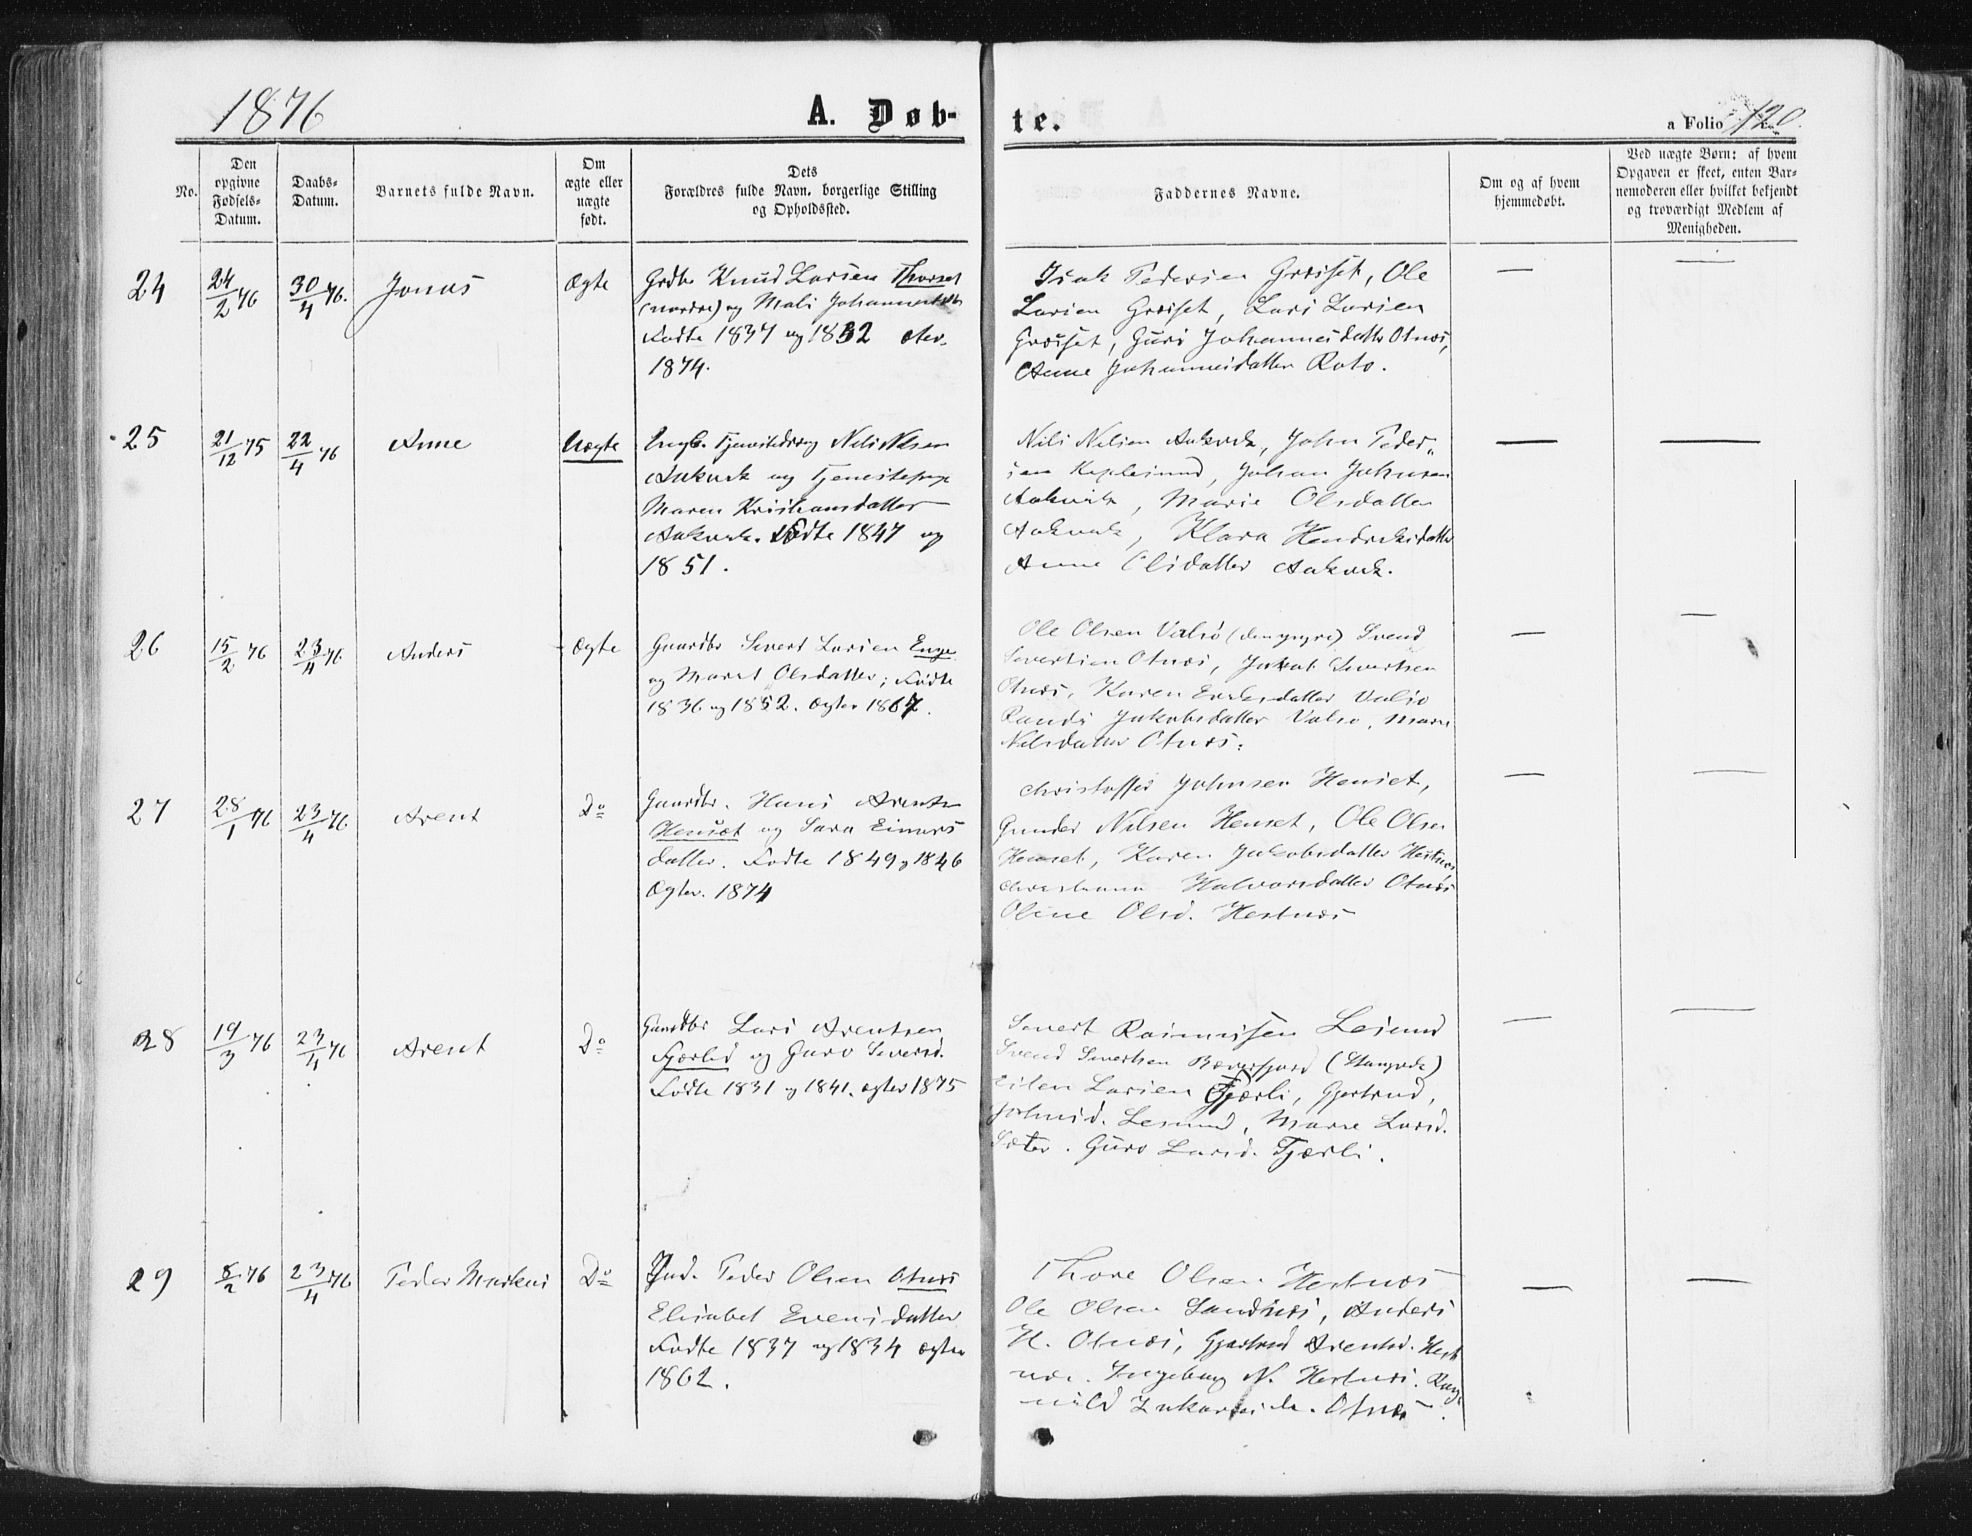 1876
A. Døb-
te.
a Folio 120.
No.
Den opgivne Fødsels-Datum.
Daabs-Datum.
Barnets fulde Navn.
Om ægte eller uægte født.
Dets Forældres fulde Navn, borgerlige Stilling og Opholdssted.
Faddernes Navne.
Om og af hvem hjemmedøbt.
Ved uægte Børn: af hvem Opgaven er skeet, enten Barnemoderen eller hvilket bekjendt og troværdigt Medlem af Menigheden.
24
24/2 76
30/4 76.
Jonas
Ægte
Grdbr Knud Larsen Thorset
(nordre) og Mali Johannesdtr
Fødte 1837 og 1832
1874.
Isak Pedersen Græset, Ole
Larsen Græset, Lars Larsen
Græset, Guri Johannesdatter Otnæs,
Anne Johannesdatter Roto.
—
—
25
21/12 75
22/4 76
Anne
Uægte
Nils Nilsen
Aakvik og Tjenestepige
Maren Kristiansdatter
Aakvik. Fødte 1847 og
1851.
Nils Nilsen Aakvik, John Peder-
sen, Johan Johnsen
Aakvik, Marie Olsdatter
Aakvik, Klara Hendriksdatter
Anne Olsdatter Aakvik.
—
—
26
15/2 76
23/4 76
Anders
Ægte
Gaardbr Sivert Larsen Enge
og Marit Olsdatter; Fødte
1836 og 1852. Ægtev 1867.
Ole Olsen Valsø (den yngre) Svend
Sivertsen Otnæs, Jakob Sivertsen
Otnæs, Karen Eriksdatter Valsø
Randi Jakobsdatter Valsø, Marit
Nilsdatter Otnæs.
—
—
27
28/1 76
23/4 76
Arent
Do
Gaardbr. Hans Arentsen
Henset og Sara Einars
datter. Fødte 1849 og 1846
Ægtev. 1874
Christoffer Johnsen Henset,
Gunder Nilsen Henset, Ole Olsen
Henset, Karen Jakobsdatter Hestnæs
Halvorsdatter Otnæs
Oline Olsd. Hestnæs
—
—
28
19/3 76
23/4 76
Arent
Do
Gaardbr Lars Arentsen
Fjærlid og Guro Siversd.
Fødte 1831 og 1841. Ægtev 1875
Sivert Rasmussen Lesund
Svend Sivertsen Bæverfjord (Stangvik)
Larsen Fjærli, Gjertrud,
Johnsd. Lesund, Marie Larsd.
Sæter. Guro Larsd. Fjærli.
—
—
29
8/2 76
23/4 76
Peder Markus
Do
Ind. Peder Olsen Otnæs
Elisabet Evensdatter
Fødte 1837 og 1834 Ægtev
1862.
Thore Olsen Hestnæs
Ole Olsen Sandnæs, Anders
H. Otnæs, Gjertrud Arentsd. Hest
næs. Ingeborg N. Hestnæs. Rang
nild Otnæs.
—
—